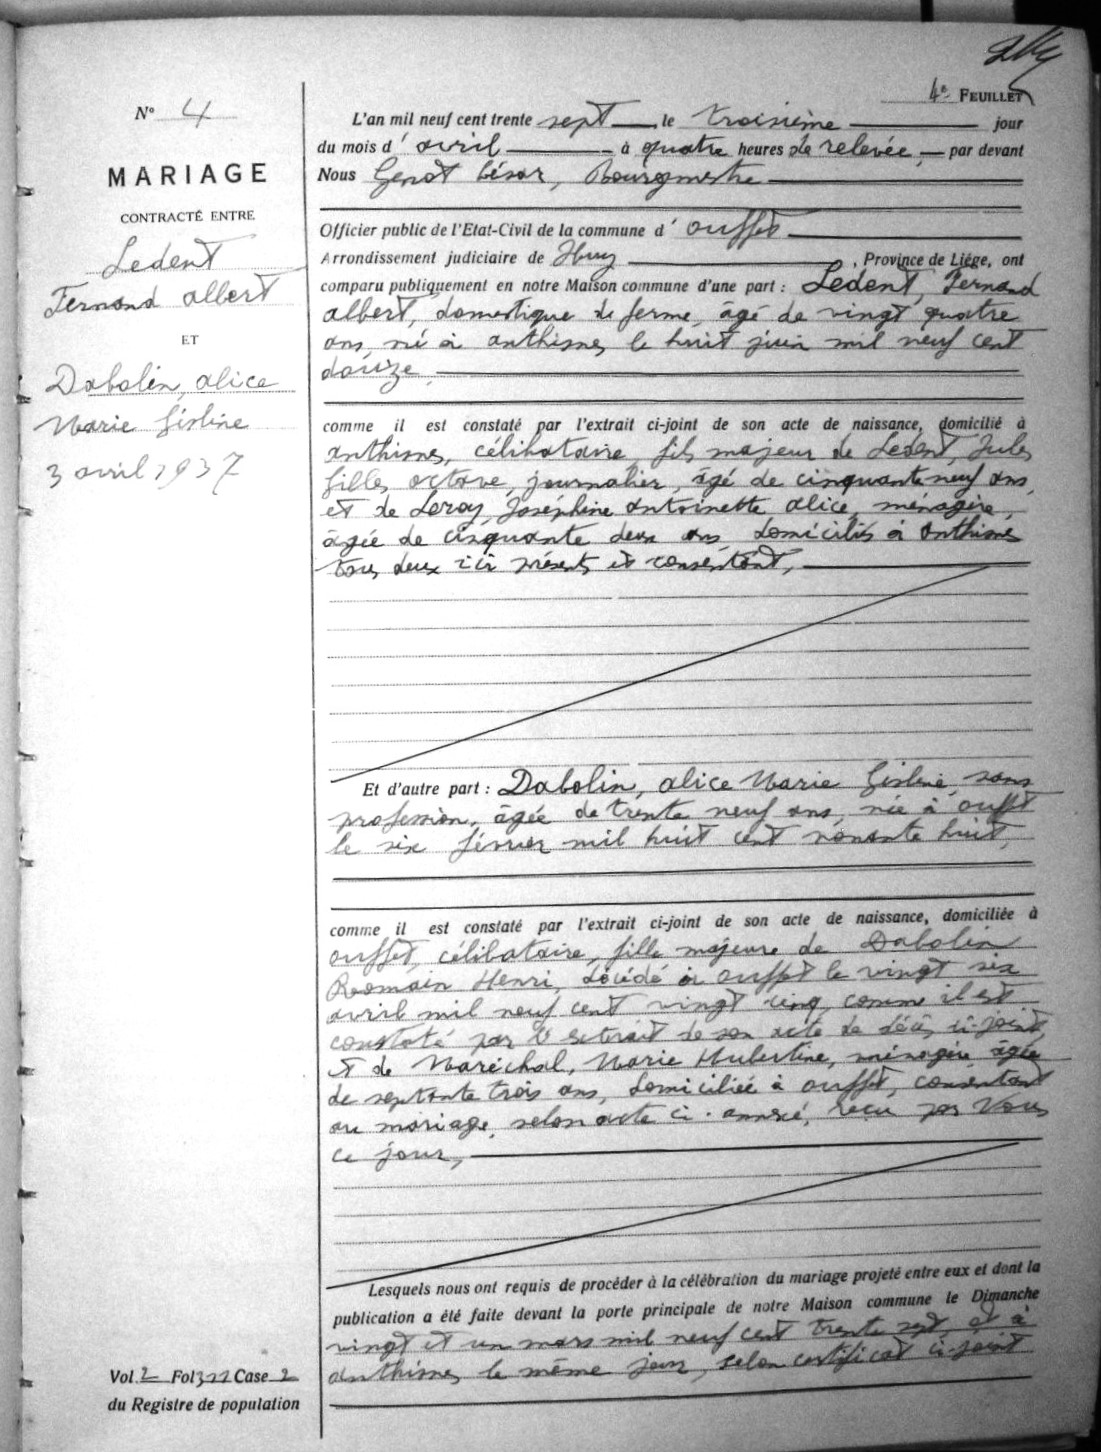 4e FEUILLET
N° 4
MARIAGE
CONTRACTÉ ENTRE
Ledent
Fernand albert
ET
Dabolin, alice
Marie Gisline
3 avril 1937
L'an mil neuf cent trente sept, le troisième jour
du mois d'avril à quatre heures de relevée, par devant
Nous Genot César, Bourgmestre
Officier public de l'Etat-Civil de la commune d'ouffet
Arrondissement judiciaire de Huy, Province de Liége, ont
comparu publiquement en notre Maison commune d'une part : Ledent, Fernand
albert, domestique de ferme, âgé de vingt quatre
ans, né à anthisnes le huit juin mil neuf cent
douze,
comme il est constaté par l'extrait ci-joint de son acte de naissance, domicilié à
anthisnes, célibataire, fils majeur de Ledent, Jules
Gilles, octave, journalier, âgé de cinquante neuf ans,
et de Leroy, Joséphine antoinette alice, ménagère,
âgée de cinquante deux ans, domiciliés à anthisnes
tous deux ici présents et consentant,
Et d'autre part : Dabolin, alice Marie Gisline, sans
profession, âgée de trente neuf ans, née à ouffet
le six février mil huit cent nonante huit,
comme il est constaté par l'extrait ci-joint de son acte de naissance, domiciliée à
ouffet, célibataire, fille majeure de Dabolin
Romain Henri, décédé à ouffet le vingt six
avril mil neuf cent vingt cinq, comme il est
constaté par l'extrait de son acte de décès ci-joint,
et de Maréchal, Marie Hubertine, ménagère âgée
de septante trois ans, domiciliée à ouffet, consentant
au mariage, selon acte ci-annexé, reçu par Nous
ce jour,
Lesquels nous ont requis de procéder à la célébration du mariage projeté entre eux et dont la
publication a été faite devant la porte principale de notre Maison commune le Dimanche
vingt et un mars mil neuf cent trente sept, et à
anthisnes le même jour, selon certificat ci-joint
Vol. 2 Fol 322 Case 2
du Registre de population